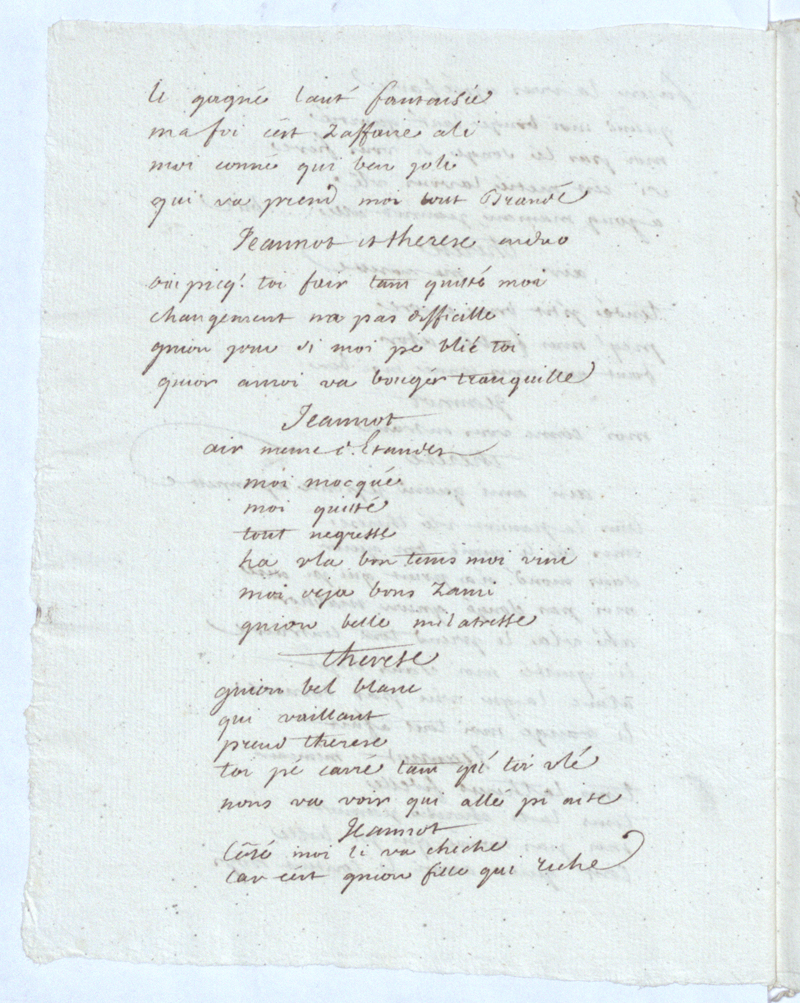 li gagné lauté fantaisie
ma foi cést Zaffaire ali
moi conné qui ben joli
qui va prend moi tout Brandé
Jeannot et therese en duo
oui picq'. toi fair tam quitté moi
changement na pas difficille
gnion jour si moi pé blié toi
gnior amoi va bouger tranquille
Jeannot
air meme
moi mocqué
moi quitté
tout negresse
ha vla bon tems moi vini
moi deja bons Zami
gnion belle milatresse
therese
gnion bel blanc
qui vaillant
prend therese
toi pé carré tam qu'e toi vlé
nous va voir qui allé pi vite
Jeannot
Côté moi li va chiche
Car cést gnion fille qui riche